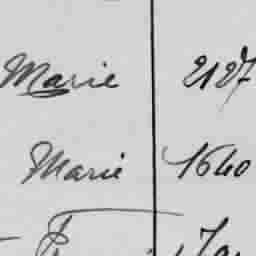 Marie 2127
Marie 1640